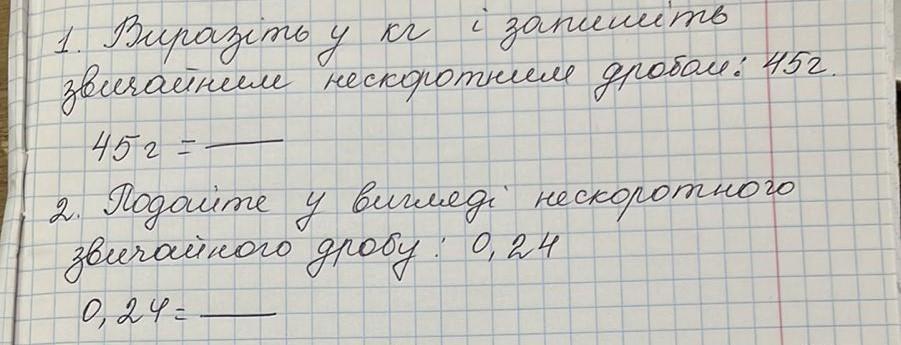 1. Виразіть у кг і запишіть
звичайним нескоротним дробом: 45г.
45г = —
2. Подайте у вигляді нескоротного
звичайного дробу: 0,24
0,24 = —